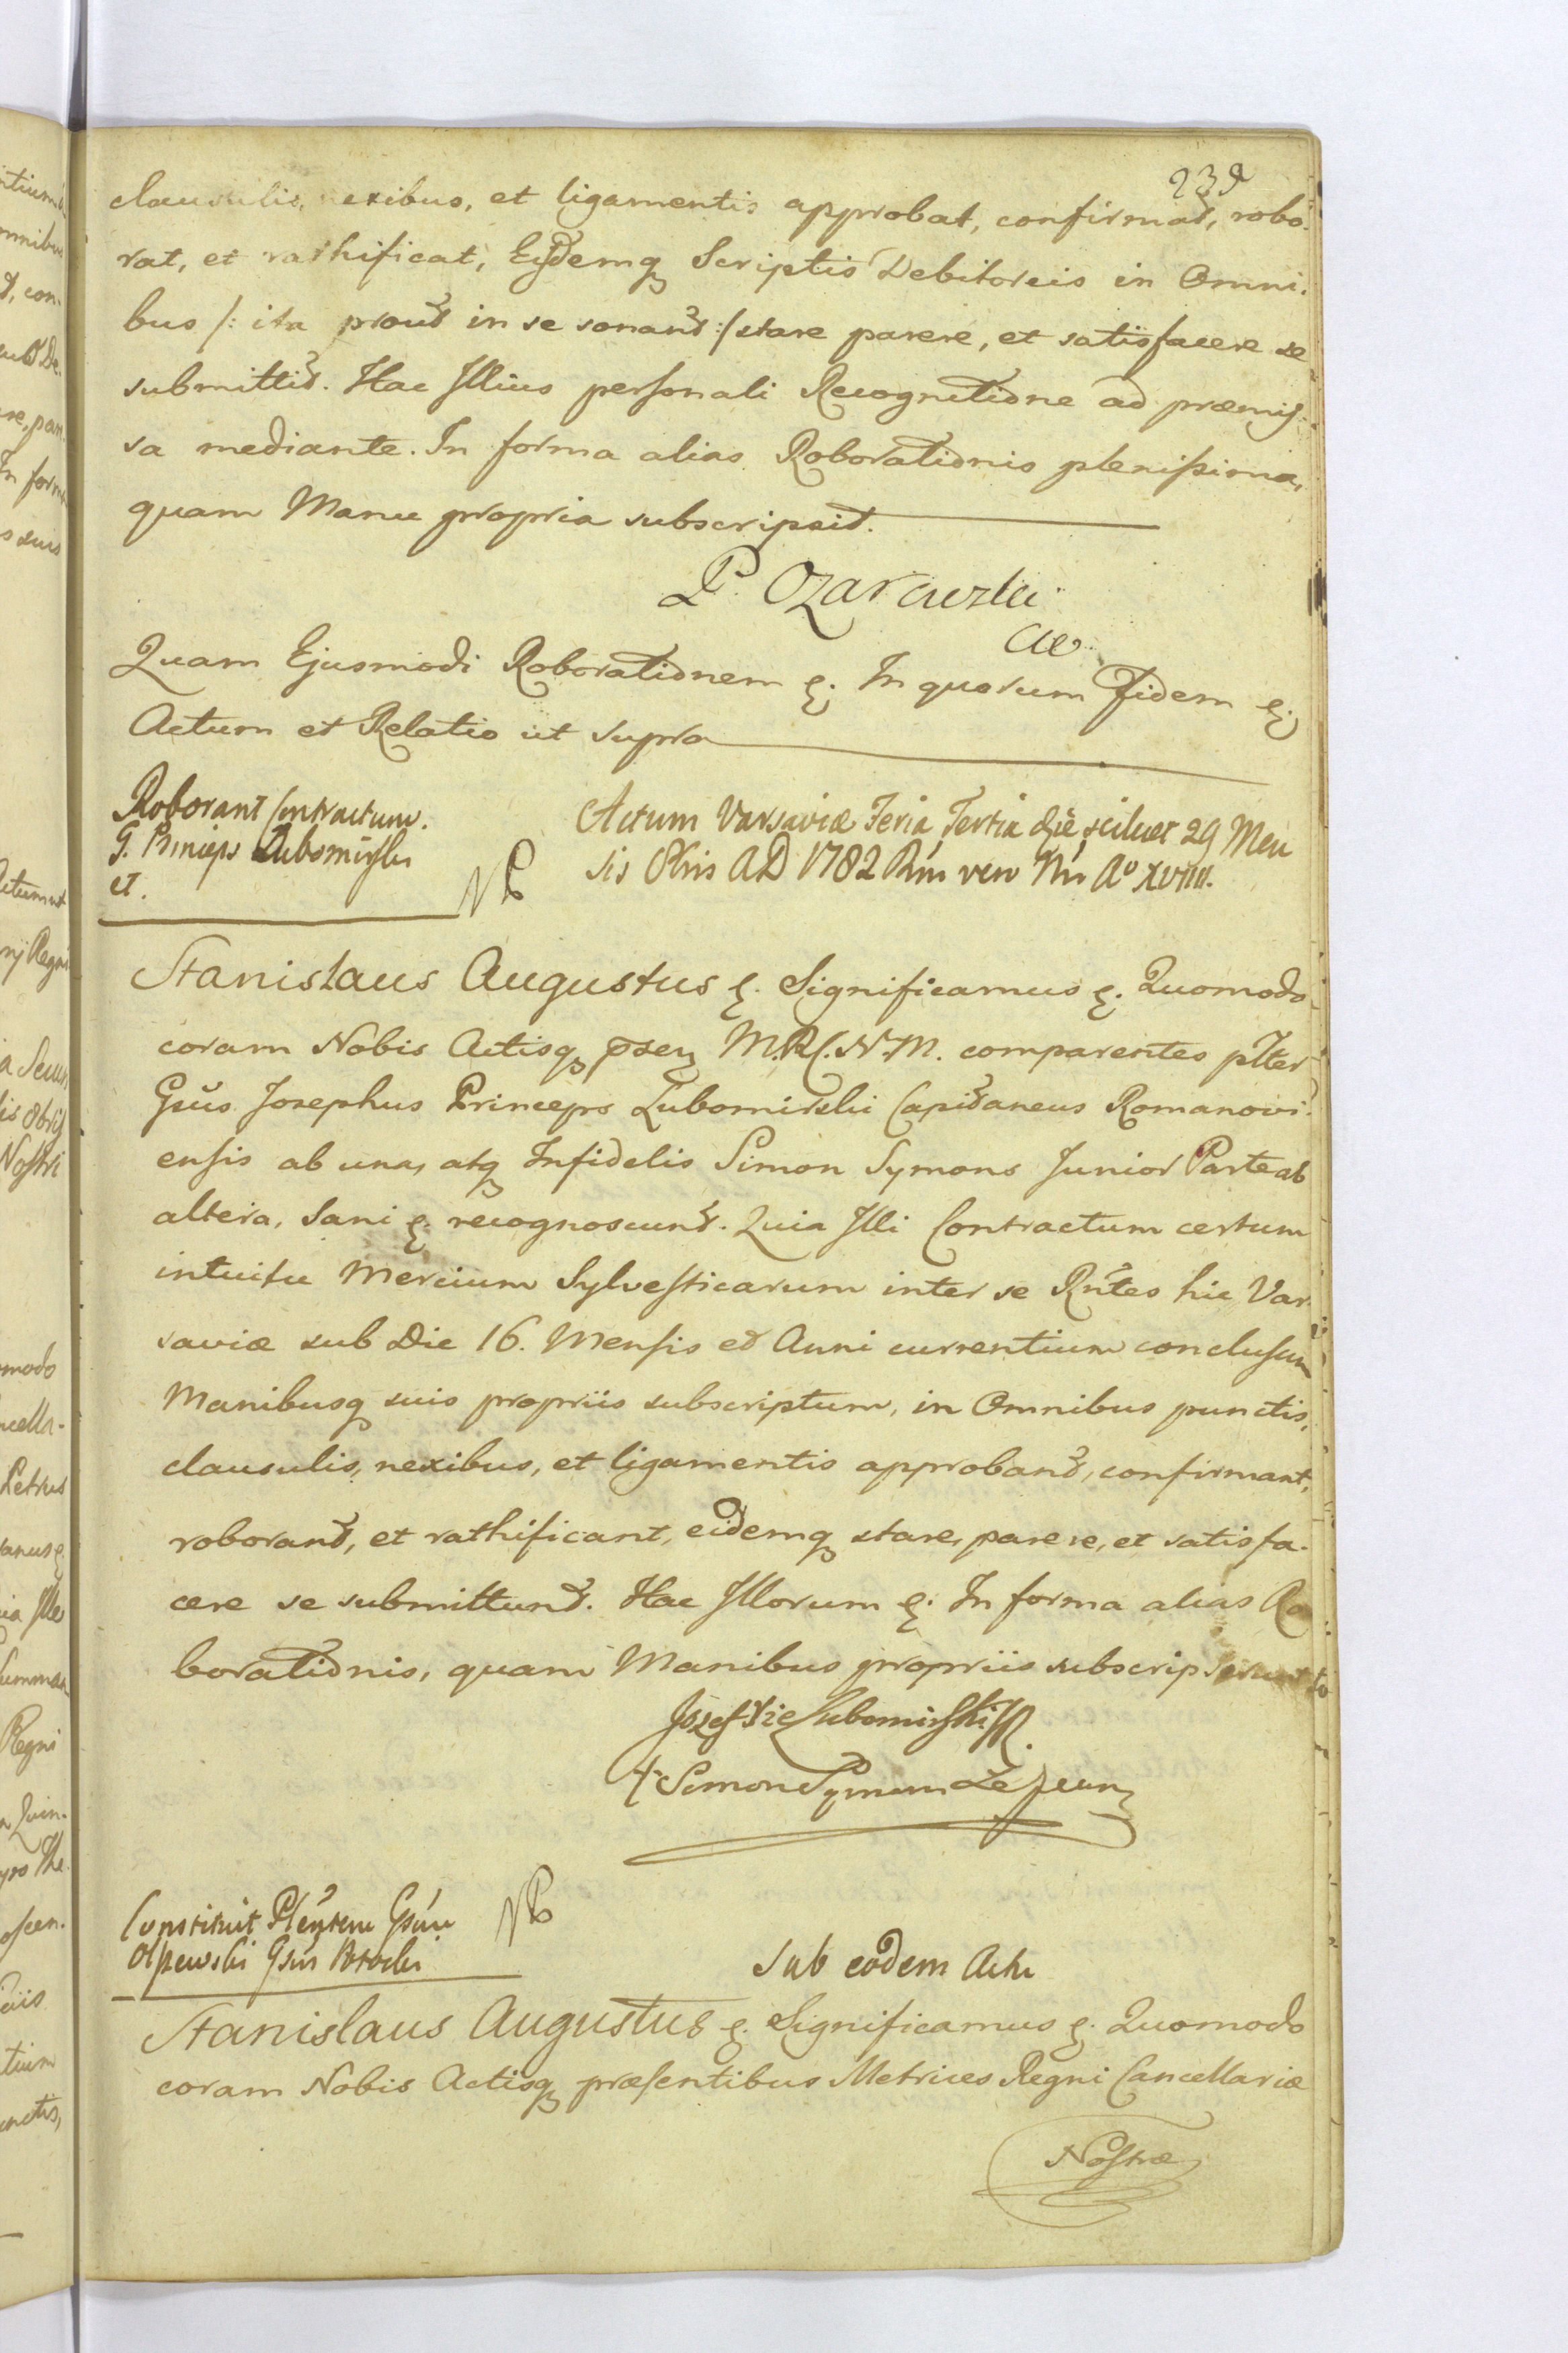 239
clausulis, nexibus, et ligamentis approbat, confirmat, robo.
rat, et rathificat, Eisdemq Scriptis Debitoreis in Omni.
bus /: ita prout in se sonant :/ stare parere, et satisfacere se
submittit. Hac Illius personali Recognitione ad præmis-
sa mediante. In forma alias Roborationis plenissima,
quam Manu propria subscripsit.
P. Ozarowski
Quam Ejusmodi Roborationem &. In quorum Fidem &
Actum et Relatio ut supra
Roborant Contractum.
G. Princeps Lubomirski
et.
Actum Varsaviæ Feria Tertia die scilicet 29 Men
sis 8bris AD 1782 Rni vero Nri Ao XVIII.
Stanislaus Augustus &. Significamus &. Quomodo
coram Nobis Actisq M.R.C.N.M. comparentes plter
Gsus Josephus Princeps Lubomirski Capitaneus Romanovi-
ensis ab una, atq Infidelis Simon Symons Junior Parte ab
altera, Sani &. recognoscunt. Quia Illi Contractum certum
intuitu Mercium Sylvesticarum inter se Rntes hic Var
saviæ sub Die 16. Mensis et Anni currentium conclusum
Manibusq suis propriis subscriptum, in Omnibus punctis,
clausulis, nexibus, et ligamentis approbant, confirmant,
roborant, et rathificant, eidemq stare, parere, et satisfa.
cere se submittunt. Hac Illorum &. In forma alias Ro
borationis, quam Manibus propriis subscripserunt
Jozef Lubomirski
Simon Symons Le Jeune
Constituit Plentem Gsum
Gsus Potocki
Sub eodem Actu
Stanislaus Augustus &. Significamus &. Quomodo
coram Nobis Actisq præsentibus Metrices Regni Cancellariæ
Nostræ